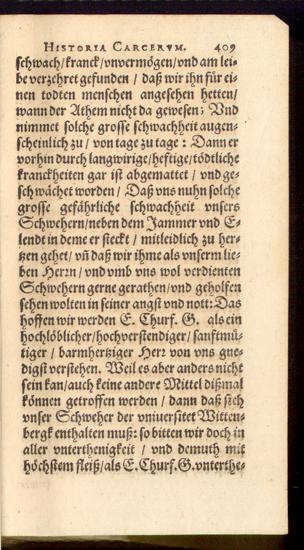 HISTORIA CARCERVM. 409
schwach/kranck/vnvermögen/vnd am lei-
be verzehret gefunden / daß wir ihn für ei-
nen todten menschen angesehen hetten/
wann der Athem nicht da gewesen; Vnd
nimmet solche grosse schwachheit augen-
scheinlich zu / von tage zu tage: Dann er
vorhin durch langwirige/hefftige/tödtliche
kranckheiten gar ist abgemattet / vnd ge-
schwächet worden / Daß vns nuhn solche
grosse gefährliche schwachheit vnsers
Schwehern/neben dem Jammer vnd E-
lendt in deme er steckt / mitleidlich zu her-
tzen gehet/ vñ daß wir ihme als vnserm lie-
ben Herrn / vnd vmb vns wol verdienten
Schwehern gerne gerathen/ vnd geholffen
sehen wolten in seiner angst vnd nott: Das
hoffen wir werden E. Churf. G. als ein
hochlöblicher/hochverstendiger / sanfftmü-
tiger / barmhertziger Herꝛ von vns gne-
digst verstehen. Weil es aber anders nicht
sein kan/auch keine andere Mittel dißmal
können getroffen werden / dann daß sich
vnser Schweher der vniuersitet Witten-
bergk enthalten muß: so bitten wir doch in
aller vnterthenigkeit / vnd demuth mit
höchstem fleiß/als E. Churf. G. vnterthe-